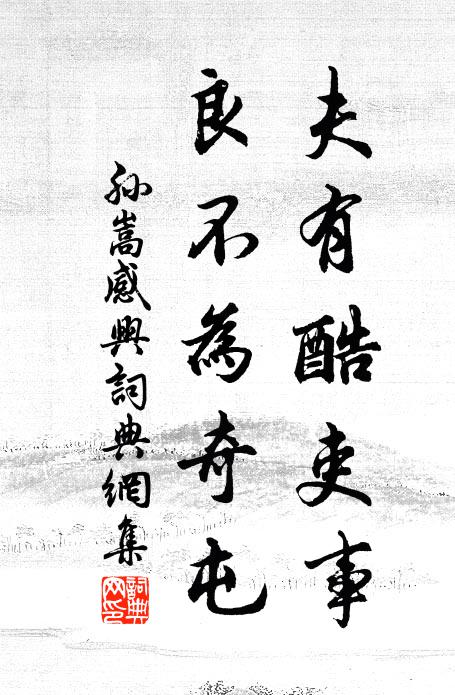 夫有酷吏事
良不為奇屯
孙嵩感興詞典網集
詞典网印